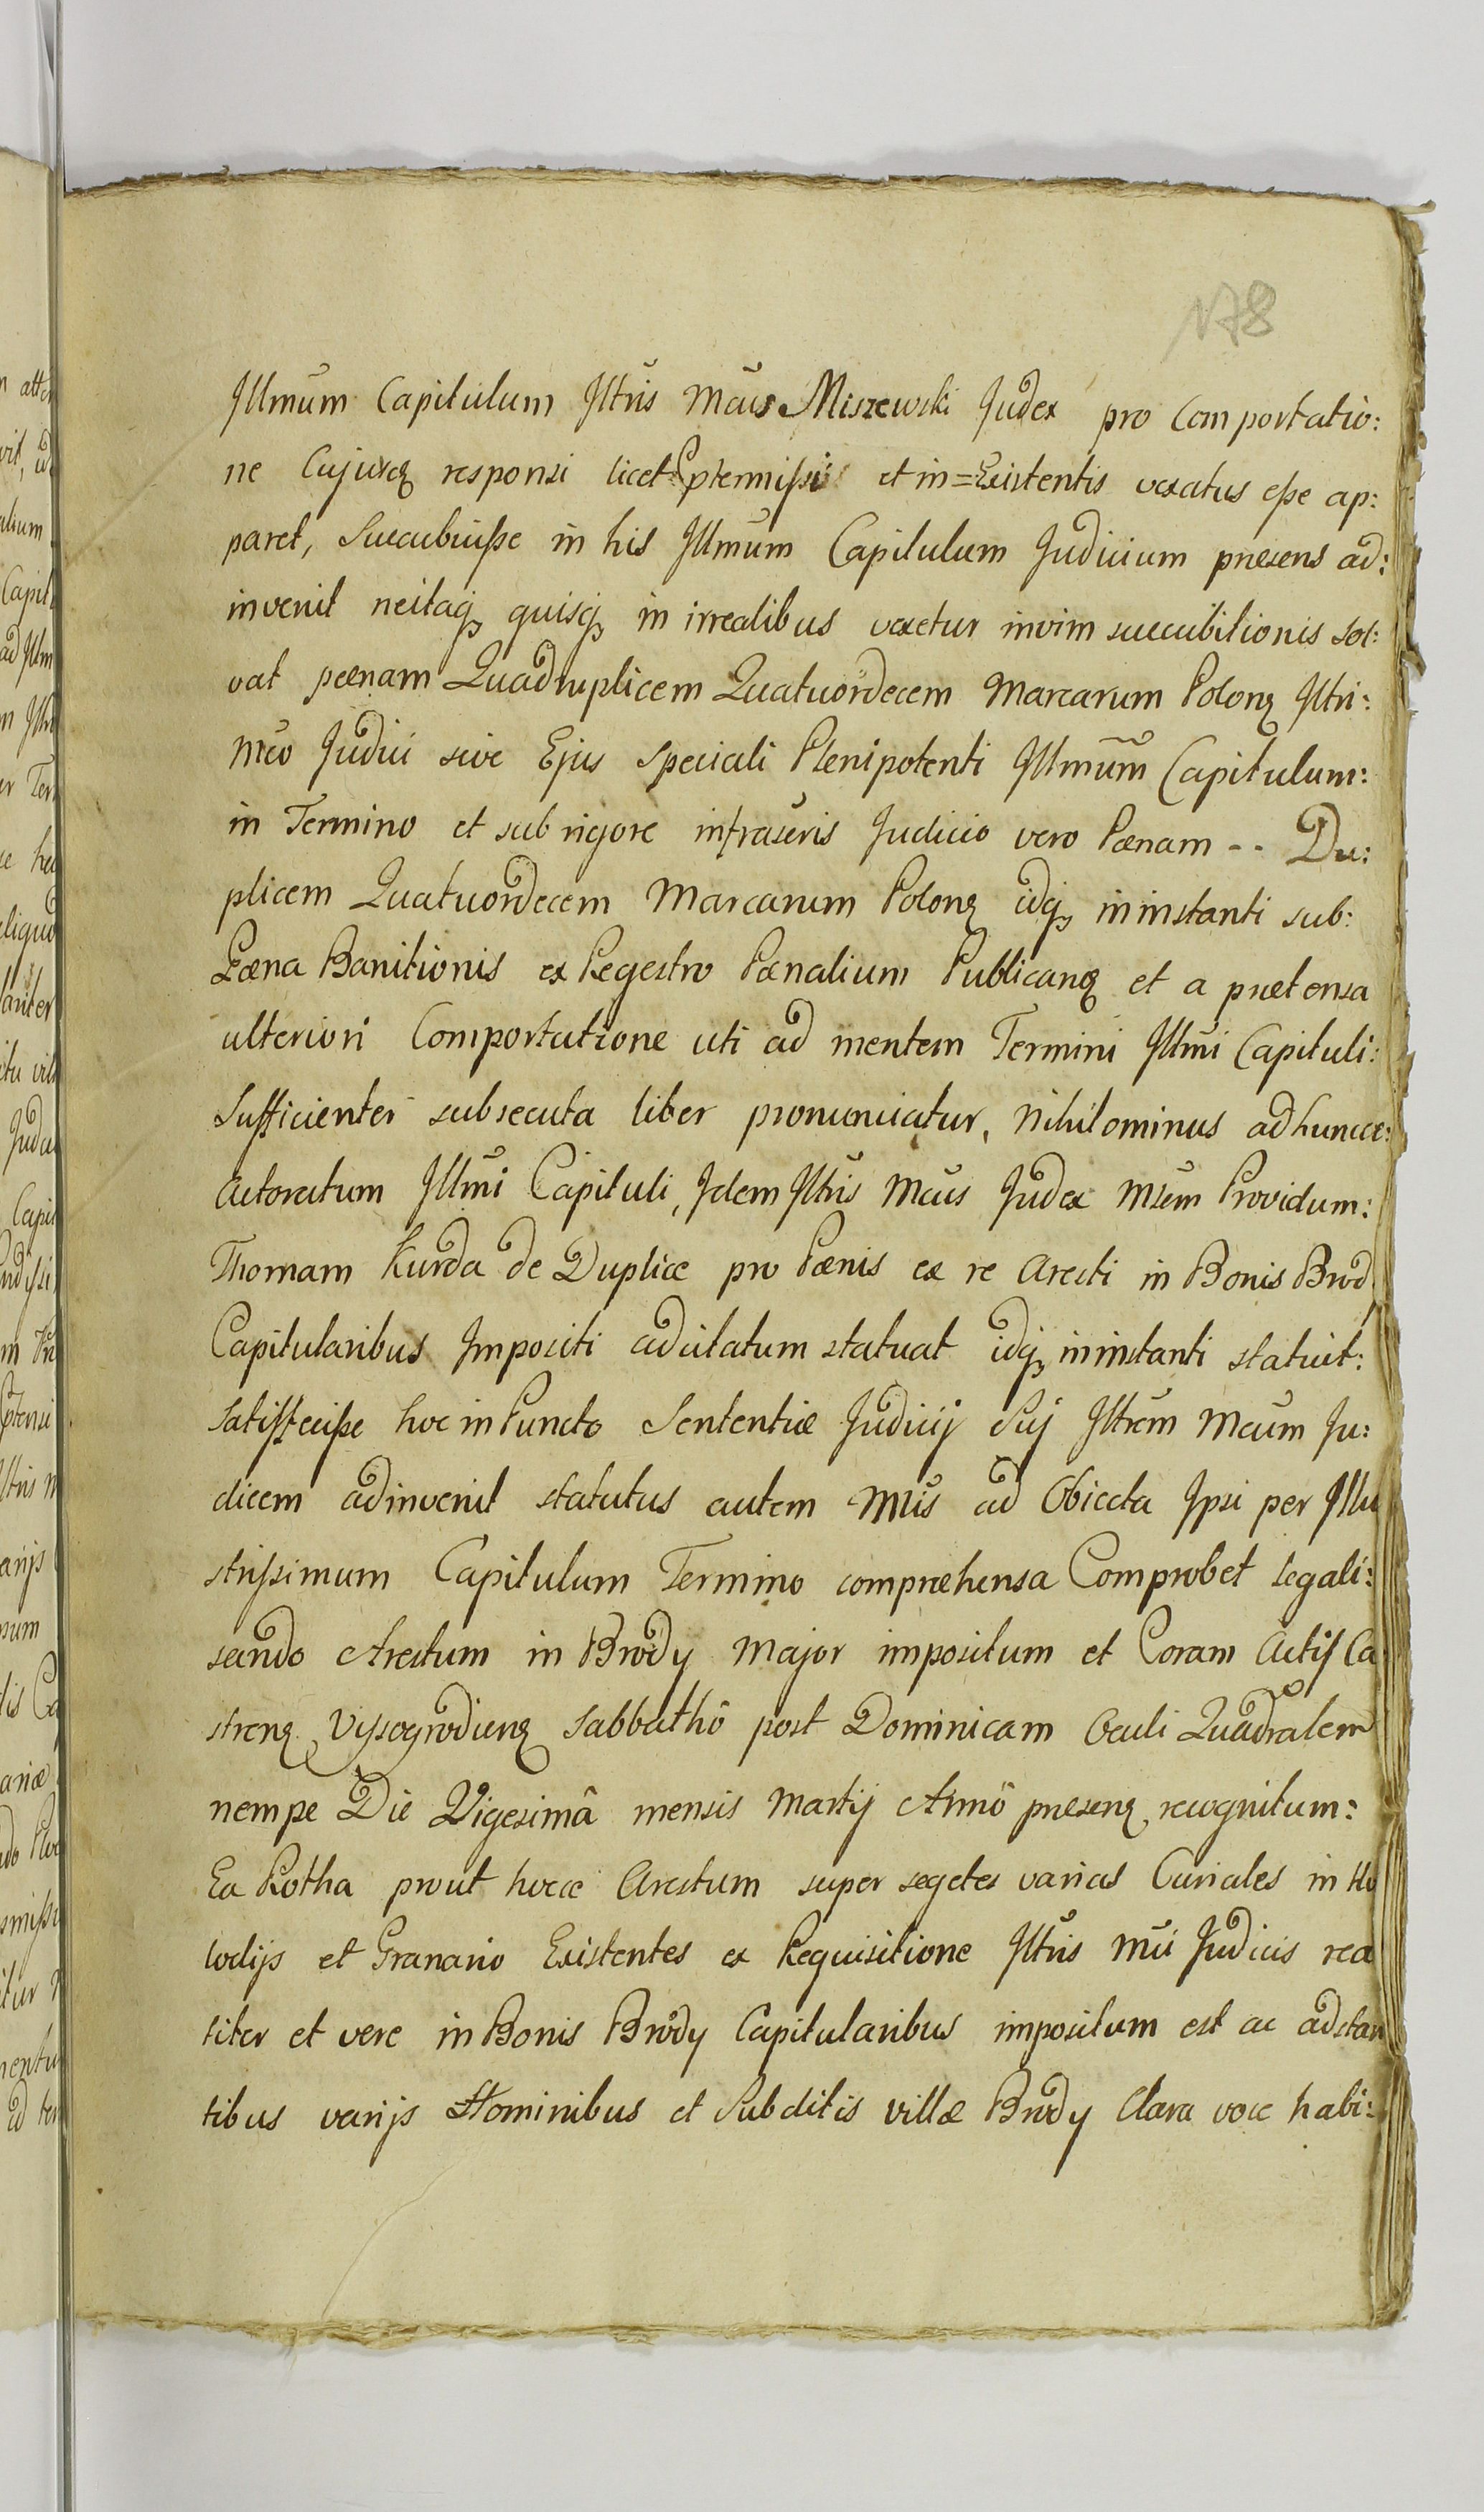 178
Jllmum Capitulum Jltris Mcus Miszewski Judex pro Comportatio:
ne Cujuscq responsi licet Eptermissi et in=Existentis vexatus esse ap:
paret, Succubuisse in his Jllmum Capitulum Judicium praesens ad:
invenit neitaq quisq in irrealibus vexetur invim succubitionis Sol:
vat paenam Quadruplicem Quatuordecem Marcarum Polonq Jltri:
Mco Judici sive Ejus Speciali Plenipotenti Jllmum Capitulum:
in Termino et sub rigore infrascris Judicio vero Paenam -- Du:
plicem Quatuordecem Marcarum Polonq idq in instanti sub:
Paena Banitionis ex Regestro Paenalium Publicanq et a praetensa
ulteriori Comportatione uti ad mentem Termini Jllmi Capituli:
Sufficienter subsecuta liber pronunciatur, Nihilominus ad huncce:
Actoratum Jllmi Capituli, Jdem Jltris Mcus Judex Mrem Providum:
Thomam Kurda de Duplice pro Paenis ex re Aresti in Bonis Brod
Capitularibus Jmpositi ad citatum statuat idq in instanti statuit:
Satisfecisse hoc in Puncto Sententiae Judicij Suj Jltrem Mcum Ju:
dicem adinvenit statutus autem Mris ad Obiecta Jpsi per Jllu
strissimum Capitulum Termino compraehensa Comprobet legali:
sando Arestum in Brody Major impositum et Coram Actis Ca
strenq Vyssogrodienq Sabbathô post Dominicam Oculi Quadralem
nempe Die Vigesimâ mensis Martij Annô praesenq recognitum:
Ea Rotha prout hocce Arestum super segetes varias Curiales in Ho
lodijs et Granario Existentes ex Requisitione Jltris Mci Judicis rea
liter et vere in Bonis Brody Capitularibus impositum est ac adstan
tibus varijs Hominibus et Subditis villae Brody Clara voce habi: